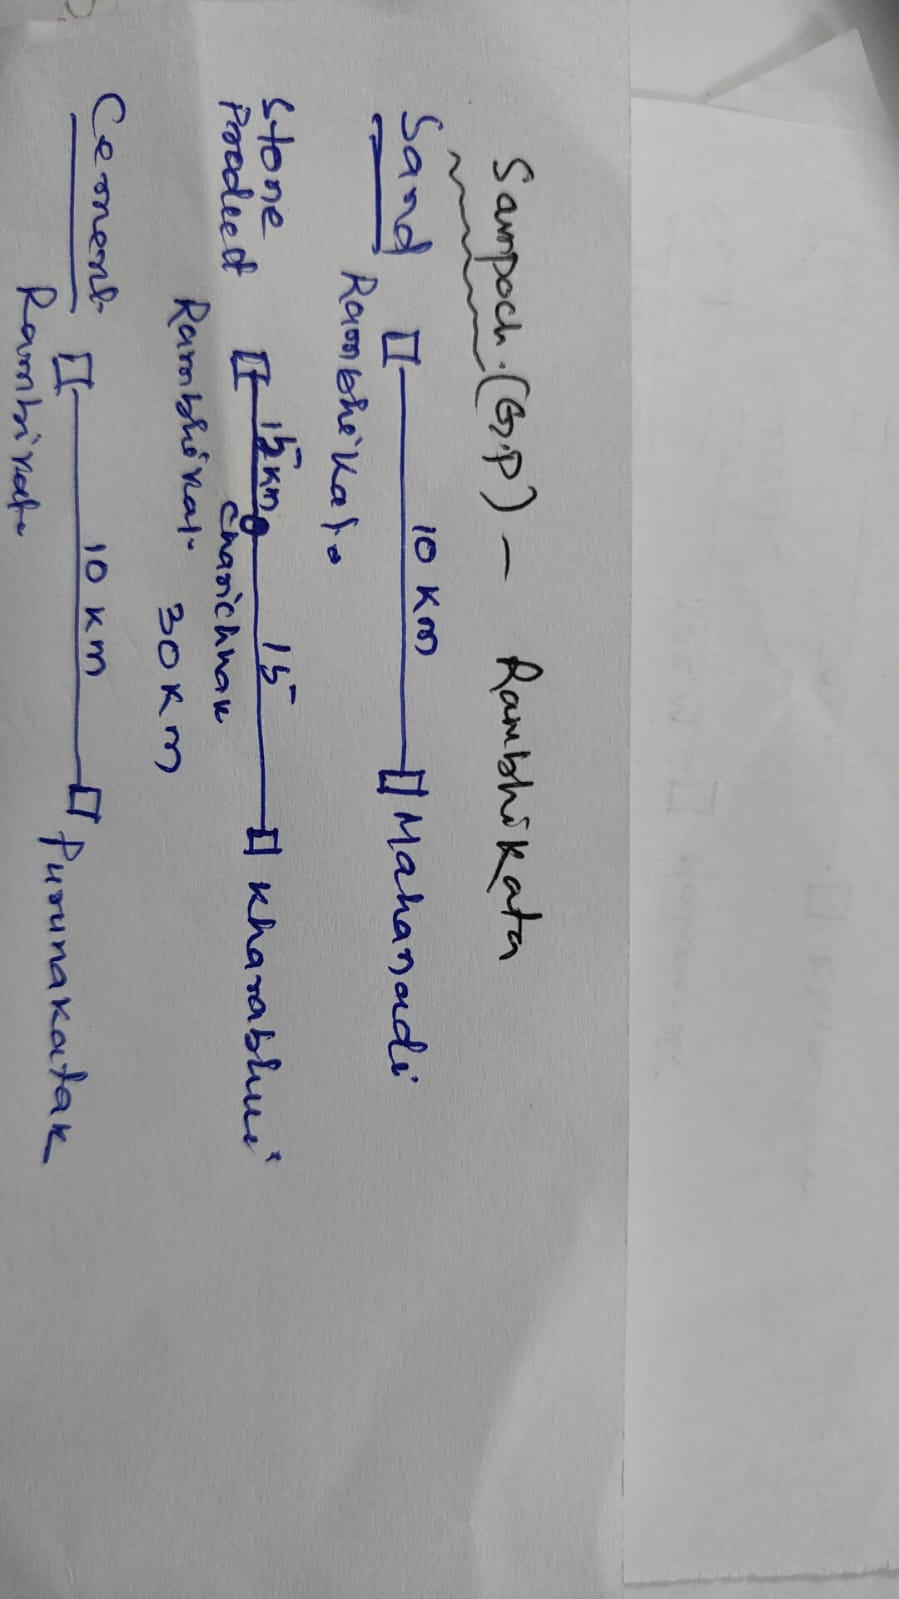 Sampoch.(G.P) - Rambhikata
Sand 10 km Mahanadi
Rambhikata
Stone 15 km 15 Kharabhui
Prodect Charichhak
Rambhikat 30 km
Cement 10 km Purunakatak
Rambikata